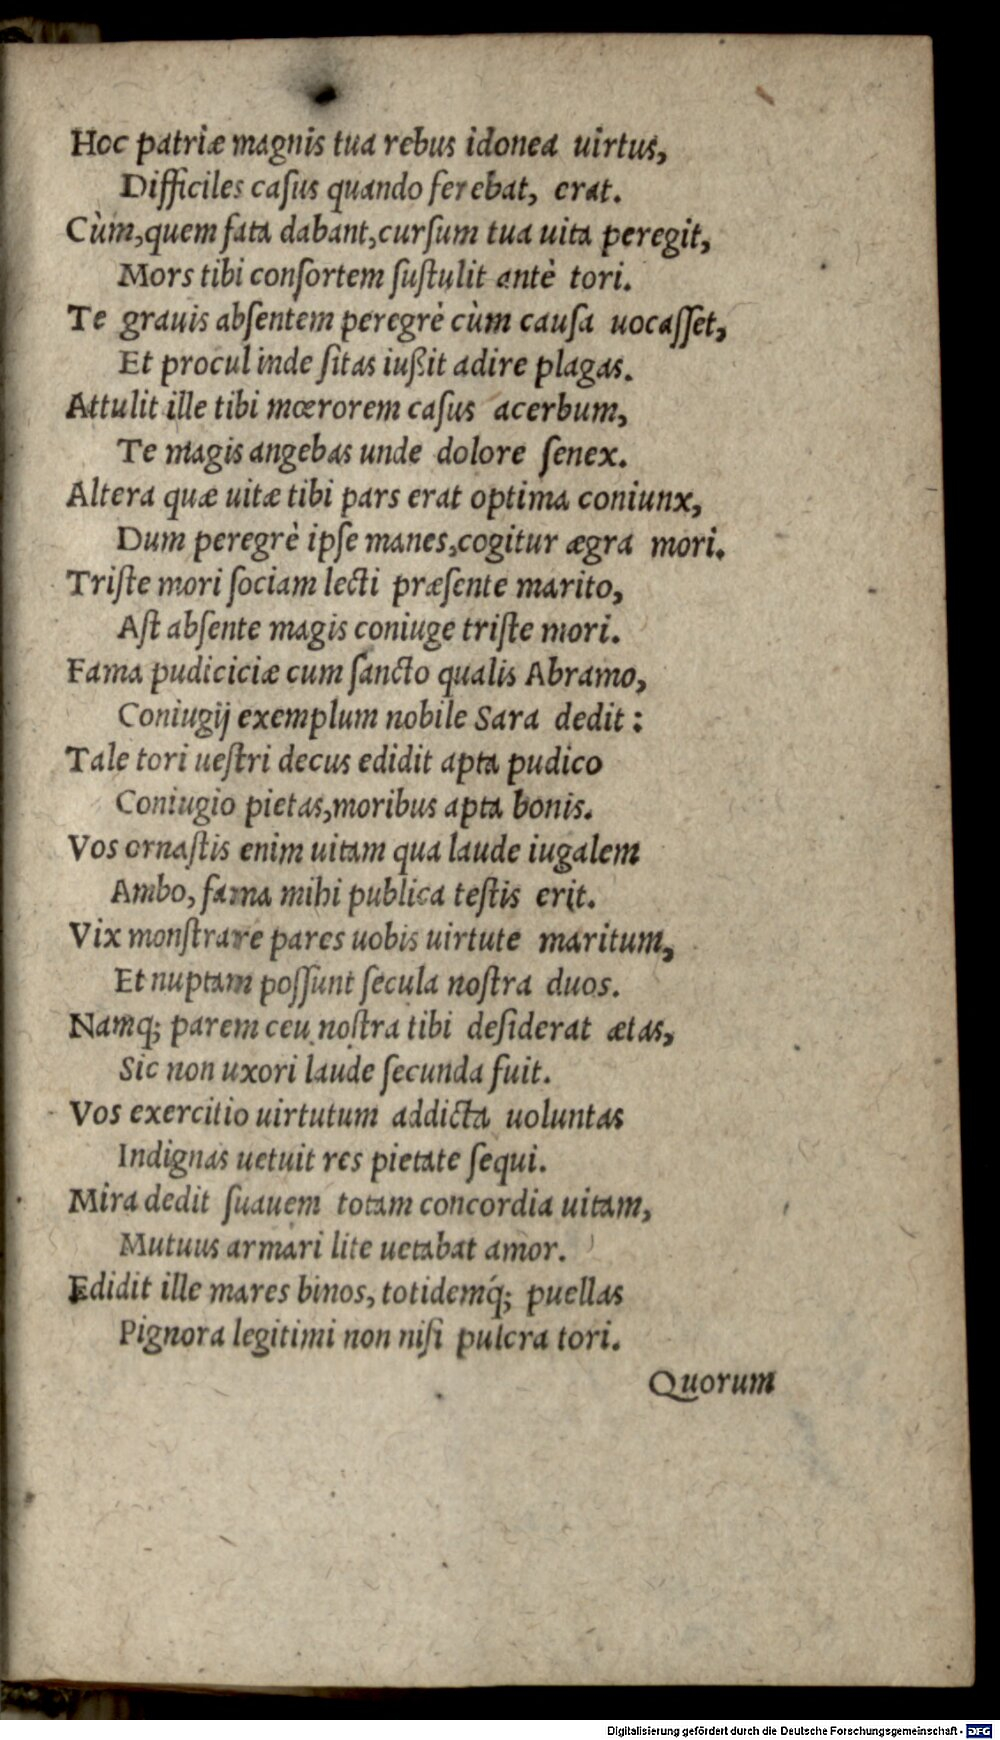 Hoc patriæ magnis tua rebus idonea uirtus,
Difficiles caſus quando ferebat, erat.
Cùm, quem fata dabant, curſum tua uita peregit,
Mors tibi conſortem ſuſtulit antè tori.
Te grauis abſentem peregrè cùm cauſa uocaſſet,
Et procul inde ſitas iußit adire plagas.
Attulit ille tibi mœrorem caſus acerbum,
Te magis angebas unde dolore ſenex.
Altera quæ uitæ tibi pars erat optima coniunx,
Dum peregrè ipſe manes, cogitur ægra mori.
Triſte mori ſociam lecti præſente marito,
Aſt abſente magis coniuge triſte mori.
Fama pudiciciæ cum ſancto qualis Abramo,
Coniugij exemplum nobile Sara dedit:
Tale tori ueſtri decus edidit apta pudico
Coniugio pietas, moribus apta bonis.
Vos ornaſtis enim uitam qua laude iugalem
Ambo, fama mihi publica teſtis erit.
Vix monſtrare pares uobis uirtute maritum,
Et nuptam poſſunt ſecula noſtra duos.
Namq; parem ceu noſtra tibi deſiderat ætas,
Sic non uxori laude ſecunda fuit.
Vos exercitio uirtutum addicta uoluntas
Indignas uetuit res pietate ſequi.
Mira dedit ſuauem totam concordia uitam,
Mutuus armari lite uetabat amor.
Edidit ille mares binos, totidemq́; puellas
Pignora legitimi non niſi pulcra tori.
Quorum
Digitalisierung gefördert durch die Deutsche Forschungsgemeinschaft - DFG